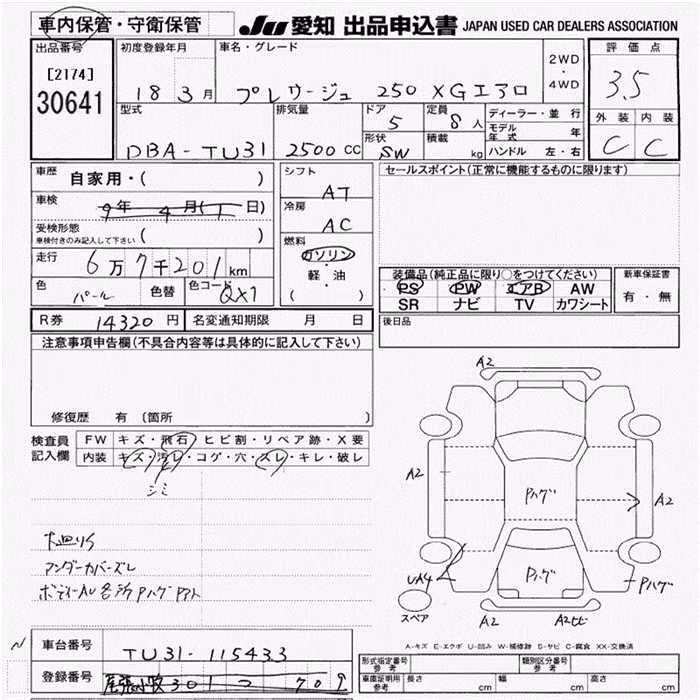 車内保管・守衛保管 JU 愛知 出品申込書 JAPAN USED CAR DEALERS ASSOCIATION
出品番号 初度登録年月 車名・グレード 2WD・4WD 評価点
[2174]
30641
18 3月 プレサージュ 250 XGエアロ 3.5
型式 排気量 ドア 定員 ディーラー・並行 外装 内装
DBA-TU31 2500cc 5 8人 モデル年式 年 C C
形状 積載 ハンドル 左・右
SW kg
車歴 自家用・( ) シフト セールスポイント(正常に機能するものに限ります)
AT
車検 9年 4月(1日) 冷房
AC
受検形態 ( )
車検付きのみ記入して下さい
燃料
走行 6万7千201km ガソリン
軽・油
( )
装備品(純正品に限り○をつけてください) 新車保証書
PS PW エアB AW 有・無
SR ナビ TV カワシート
色 パール 色替 色コード QX1
R券 14320円 名変通知期限 月 日 後日品
注意事項申告欄(不具合内容等は具体的に記入して下さい)
修復歴 有 〔箇所
検査員記入欄 FW キズ・飛石・ヒビ割・リペア跡・X要
内装 キズ・汚レ・コゲ・穴・スレ・キレ・破レ
シミ
下廻りS
アンダーカバーズレ
ボディーAU各所Pハゲアト
A2
A2
Pハゲ
A2
Pハゲ
UA4
Pハゲ
スペア
A2
A2ヒビ
A-キズ E-エクボ U-凹み W-補修跡 S-サビ C-腐食 XX-交換済
車台番号 TU31-115433
登録番号 尾張小牧 301 つ 709
型式指定番号 参考 類別区分番号 参考
車庫証明用 参考 長さ cm 幅 cm 高さ cm